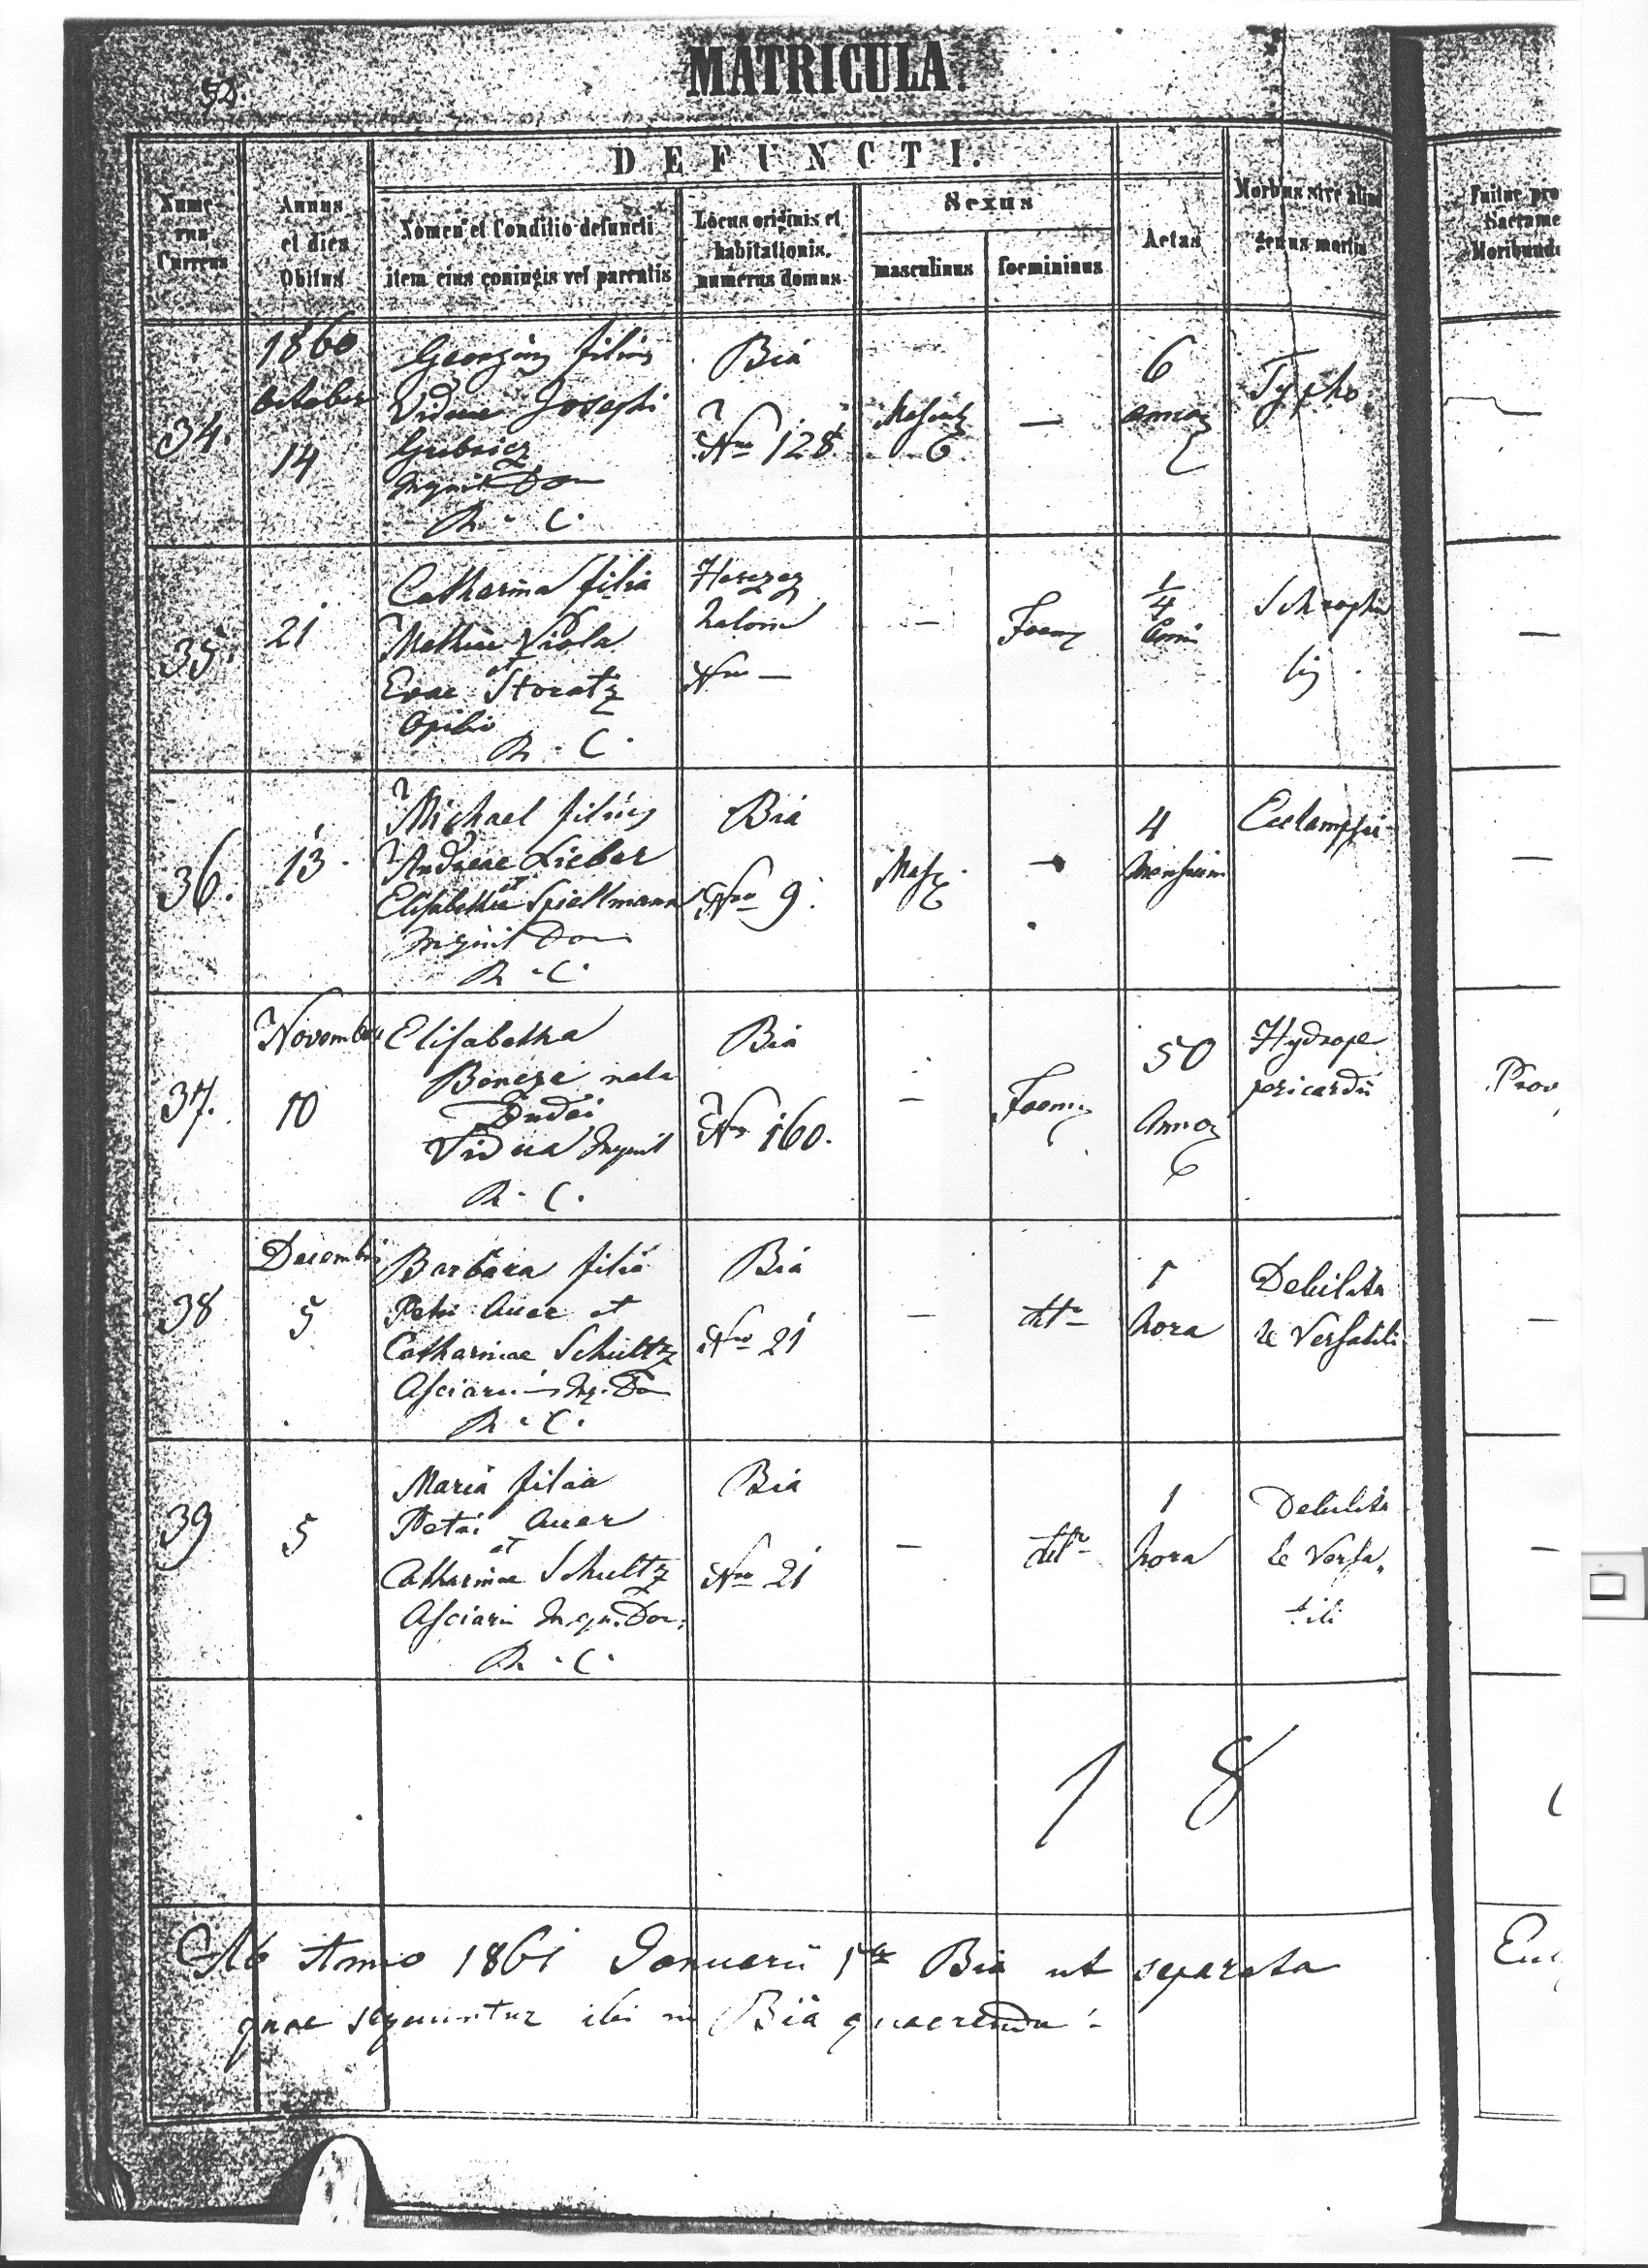 MATRICULA.
52.
DEFUNCTI.
Nume-
rus
Currens
Annus
et dies
Obitus
Nomen et Conditio defuncti
item eius coniugis vel parentis
Locus originis et
habitationis,
numerus domus
Sexus
masculinus
foemininus
Aetas
Morbus sive aliud
genus mortis
Fuitne pro
Sacrame
Moribund
34.
1860
October
14
Georgius filius
Viduae Josephi
Inquil Dom
R. C.
Bia
Nro 128
6
annor
Typho
35.
21
Catharina filia
Mathiae Viola
et
Evae Storatz
Opilio
R. C.
Herczeg
halom
Nro —
Foem
1/4
Anni
36.
13.
Michael filius
Andreae Lieber
et
Elisabethae Spiellmann
Inquil Dom
R. C.
Bia
Nro 9.
Masc
4
Mensium
37.
November
10
Elisabetha
nata
Vidua Inquil
R. C.
Bia
Nro 160.
Foem
50
Annor
Hydrope
pericardii
Prov
38
Decembris
5
Barbara filia
Petri Auer et
Catharinae Schultz
Asciarii Inq. Dom
R. C.
Bia
Nro 21
dtto
1
hora
Debilita
te Versatili
39
5
Maria filia
Petri Auer
et
Catharinae Schultz
Asciarii Inqu. Dom.
R. C.
Bia
Nro 21
dtto
1
hora
Debilita
te Versa
tili
18
Ab Anno 1861 Januarii 1a Bia ut separata
quae sequuntur ibi in Bia quaerenda.